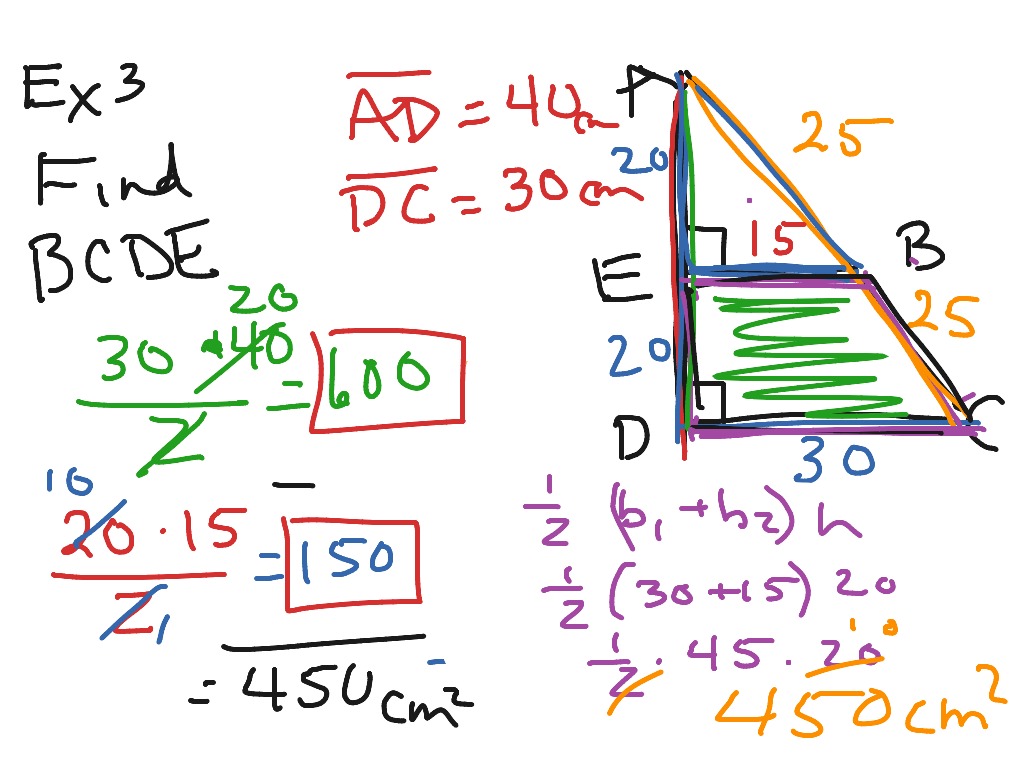 Ex 3
Find
BCDE
AD = 40cm
DC = 30cm
A
20
25
15
E
B
20
25
D
C
30
20
30 · 40
2
= 600
10
20 · 15
2 1
= 150
—
= 450 cm²
1/2 (b₁ + b₂) h
1/2 (30 + 15) 20
1/2 · 45 · 20
10
450 cm²